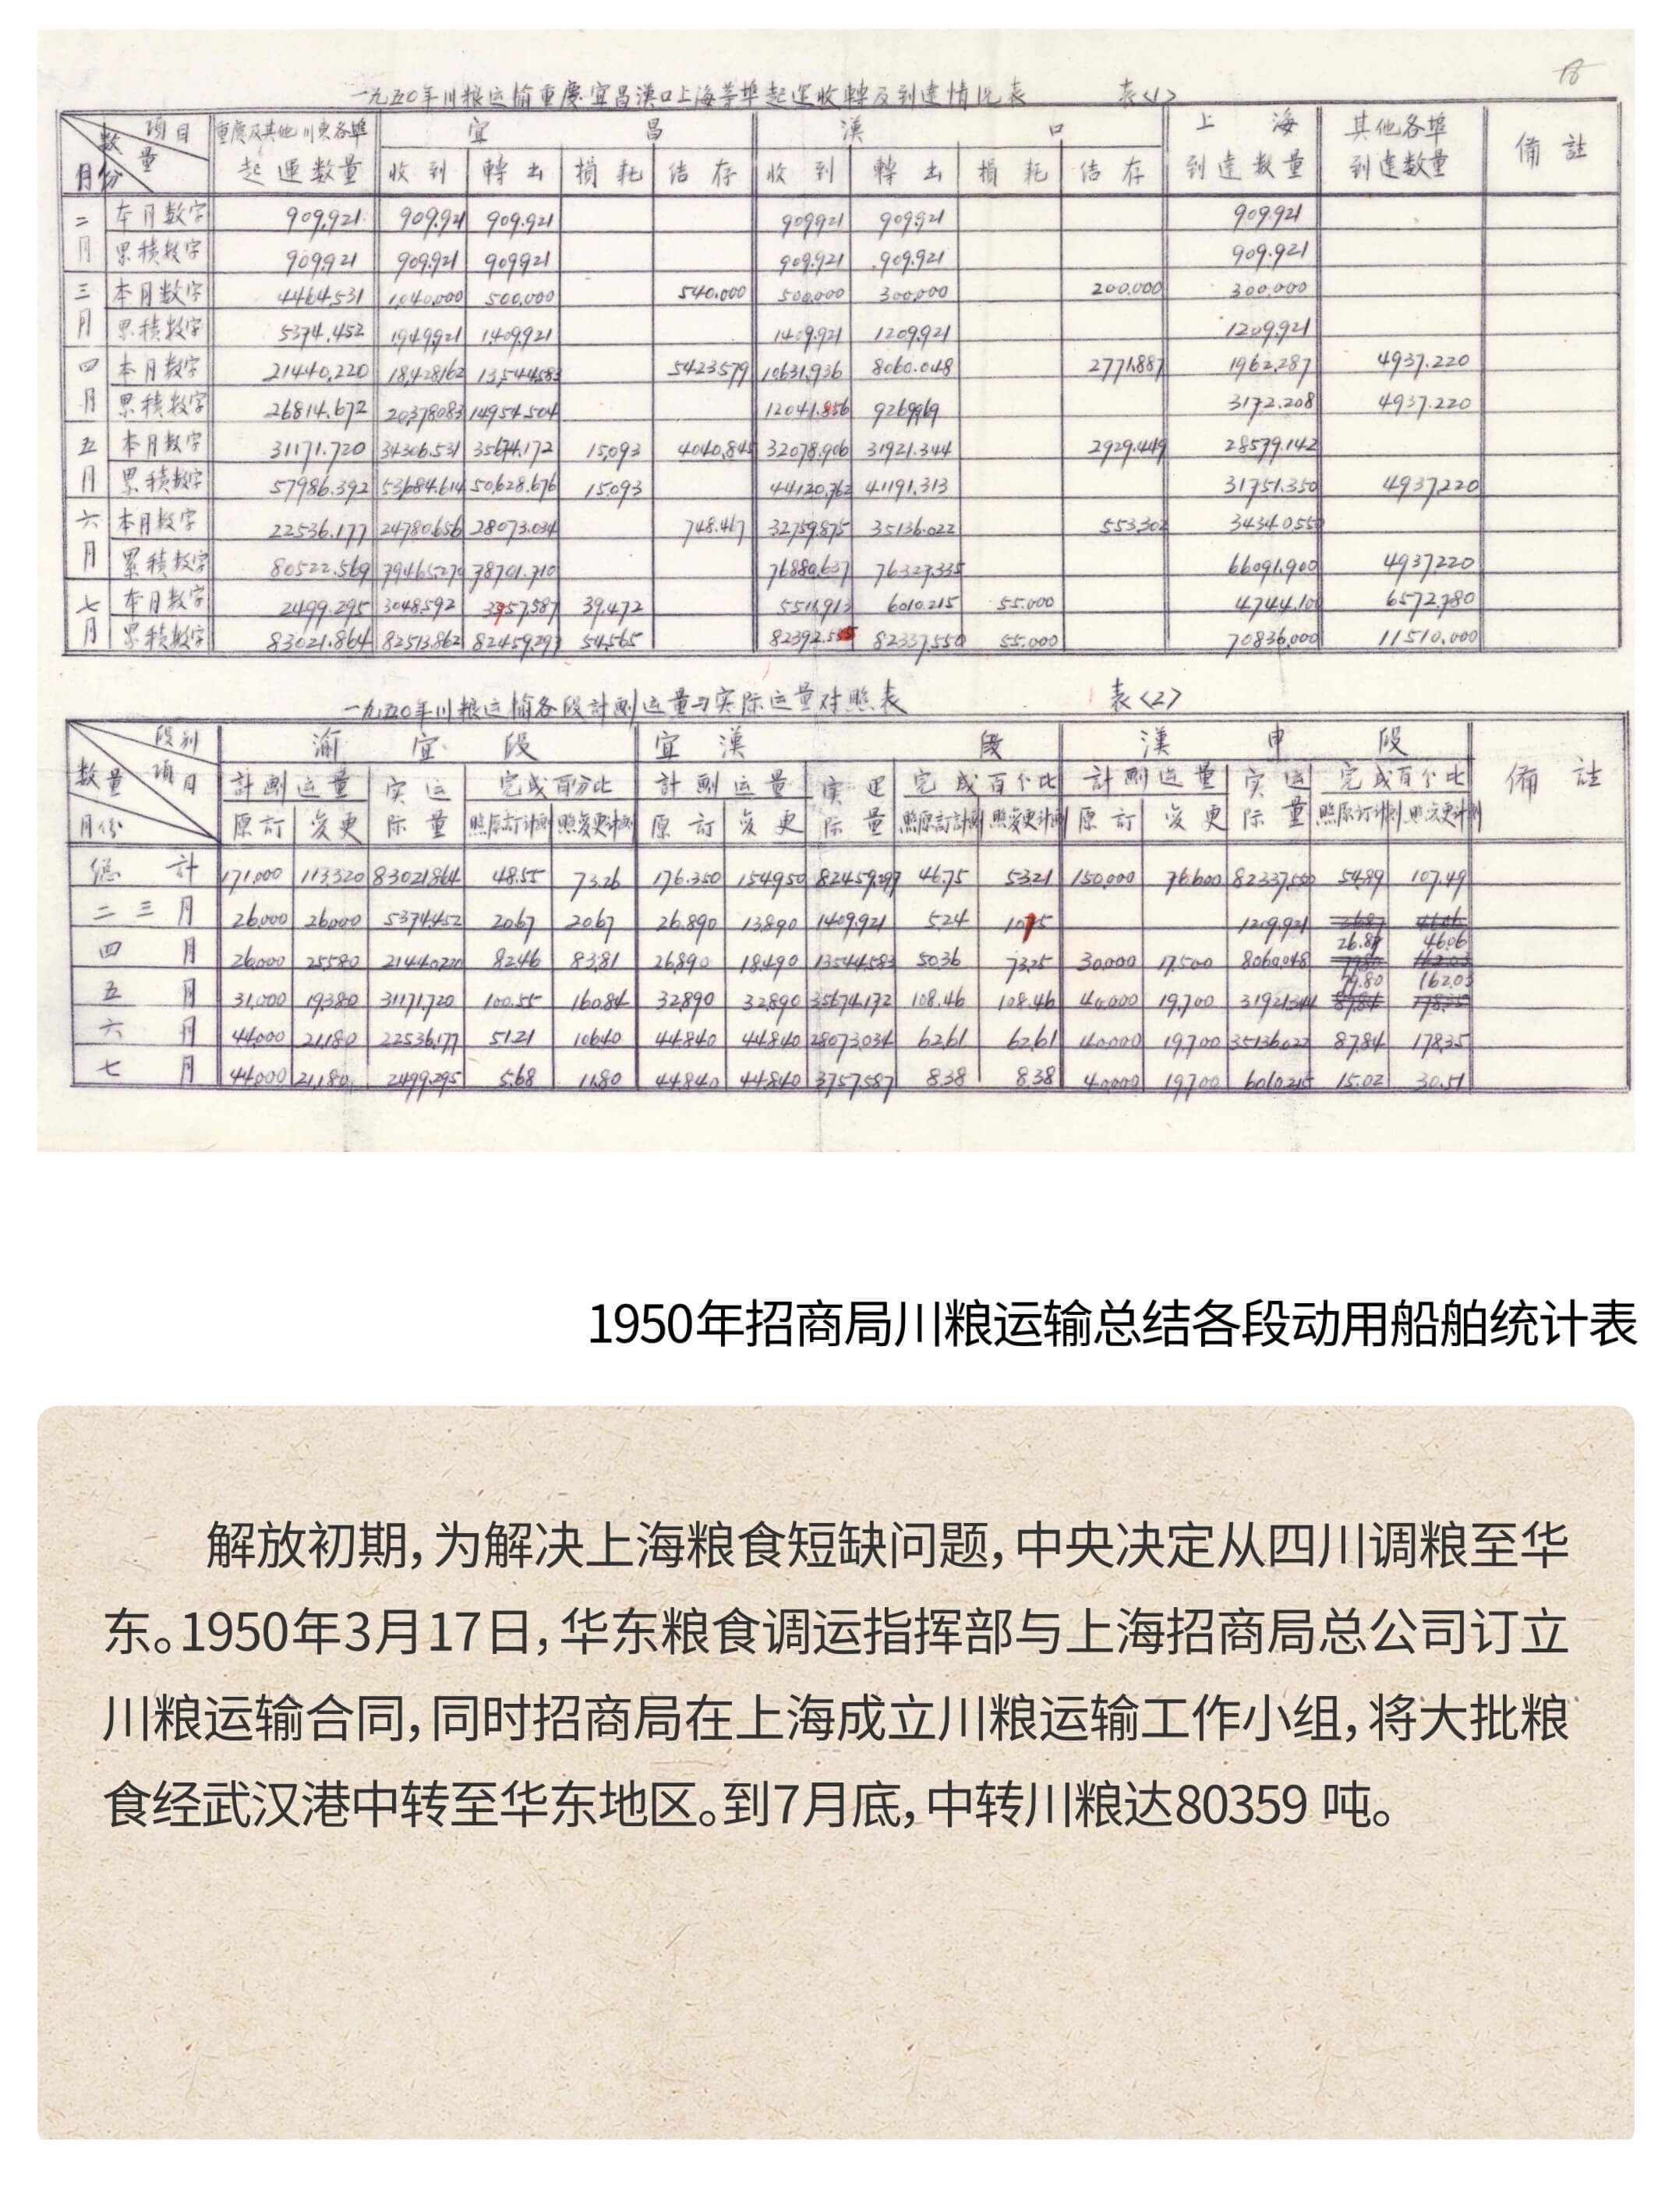 一九五〇年川粮运输重慶宜昌漢口上海等埠起运收轉及到達情况表 表<1>
項目 数量 月份 重慶及其他川東各埠起運数量 宜昌 漢口 上海到達数量 其他各埠到達数量 備註
收到 轉出 損耗 结存 收到 轉出 損耗 结存
二月 本月数字 909,921 909.921 909.921 909921 909,921 909.921
累積数字 909921 909.921 909921 909.921 909.921 909.921
三月 本月数字 4464,531 1,040,000 500,000 540,000 500,000 300,000 200,000 300,000
累積数字 5374,452 1,949,921 1,409,921 1409,921 1209,921 1209,921
四月 本月数字 21440,220 18,428,162 13,544,583 5423579 10631,936 8060.048 2771,887 1962,287 4937.220
累積数字 26814.672 20,378,083 14954,504 12041.856 9269,969 3172.208 4937.220
五月 本月数字 31171.720 34306.531 35674.172 15,093 4040,845 32078.906 31921.344 2929.449 28579.142
累積数字 57986.392 53,684.614 50,628.676 15,093 44120,762 41191.313 31751.350 4937,220
六月 本月数字 22536.177 24780.656 28073.034 748.467 32759,875 35136.022 553,302 34340,550
累積数字 80522.569 79465,270 78701.710 76880,637 76327,335 66091,900 4937,220
七月 本月数字 2499.295 3048,592 3757,587 39,472 5511,913 6010.215 55.000 4744,100 6572,780
累積数字 83021.864 82513,862 82459,297 54,565 82392.555 82337,550 55.000 70836,000 11510,000
一九五〇年川粮运输各段計劃运量与实际运量对照表 表<2>
段别 項目 数量 月份 渝宜段 宜漢段 漢申段 備註
計劃运量 实际运量 完成百分比 計劃运量 实际运量 完成百分比 計劃运量 实际运量 完成百分比
原訂 变更 照原訂計劃 照变更計劃 原訂 变更 照原訂計劃 照变更計劃 原訂 变更 照原訂計劃 照变更計劃
總計 171,000 113,320 83021,864 48.55 73.26 176.350 154,950 82459,297 46.75 53.21 150,000 76,600 82337,550 54.89 107.49
二三月 26,000 26,000 5374,452 20.67 20.67 26,890 13,890 1409,921 5.24 10.15 1209,921 26.87 46.06
四月 26,000 25580 21440,220 82.46 83.81 26,890 18,490 13544,583 50.36 73.25 30,000 17,500 8060,048 26.87 46.06
五月 31,000 19,380 31171,720 100.55 160.84 32,890 32,890 35674,172 108.46 108.46 40,000 19,700 31921,344 79.80 162.03
六月 44,000 21,180 22536,177 51.21 106.40 44,840 44,840 28073,034 62.61 62.61 40,000 19,700 35136,022 87.84 178.35
七月 44,000 21,180 2499,295 5.68 11.80 44,840 44,840 3757,587 8.38 8.38 40,000 19,700 6010,215 15.02 30.51
1950年招商局川粮运输总结各段动用船舶统计表
解放初期，为解决上海粮食短缺问题，中央决定从四川调粮至华
东。1950年3月17日，华东粮食调运指挥部与上海招商局总公司订立
川粮运输合同，同时招商局在上海成立川粮运输工作小组，将大批粮
食经武汉港中转至华东地区。到7月底，中转川粮达80359 吨。